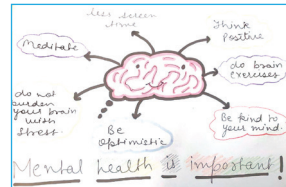 less screen
time
Think
Positive
Meditate
do brain
exercises
do not
burden
your brain
with
stress.
Be
Optimistic
Be kind to
your mind.
Mental health is important!